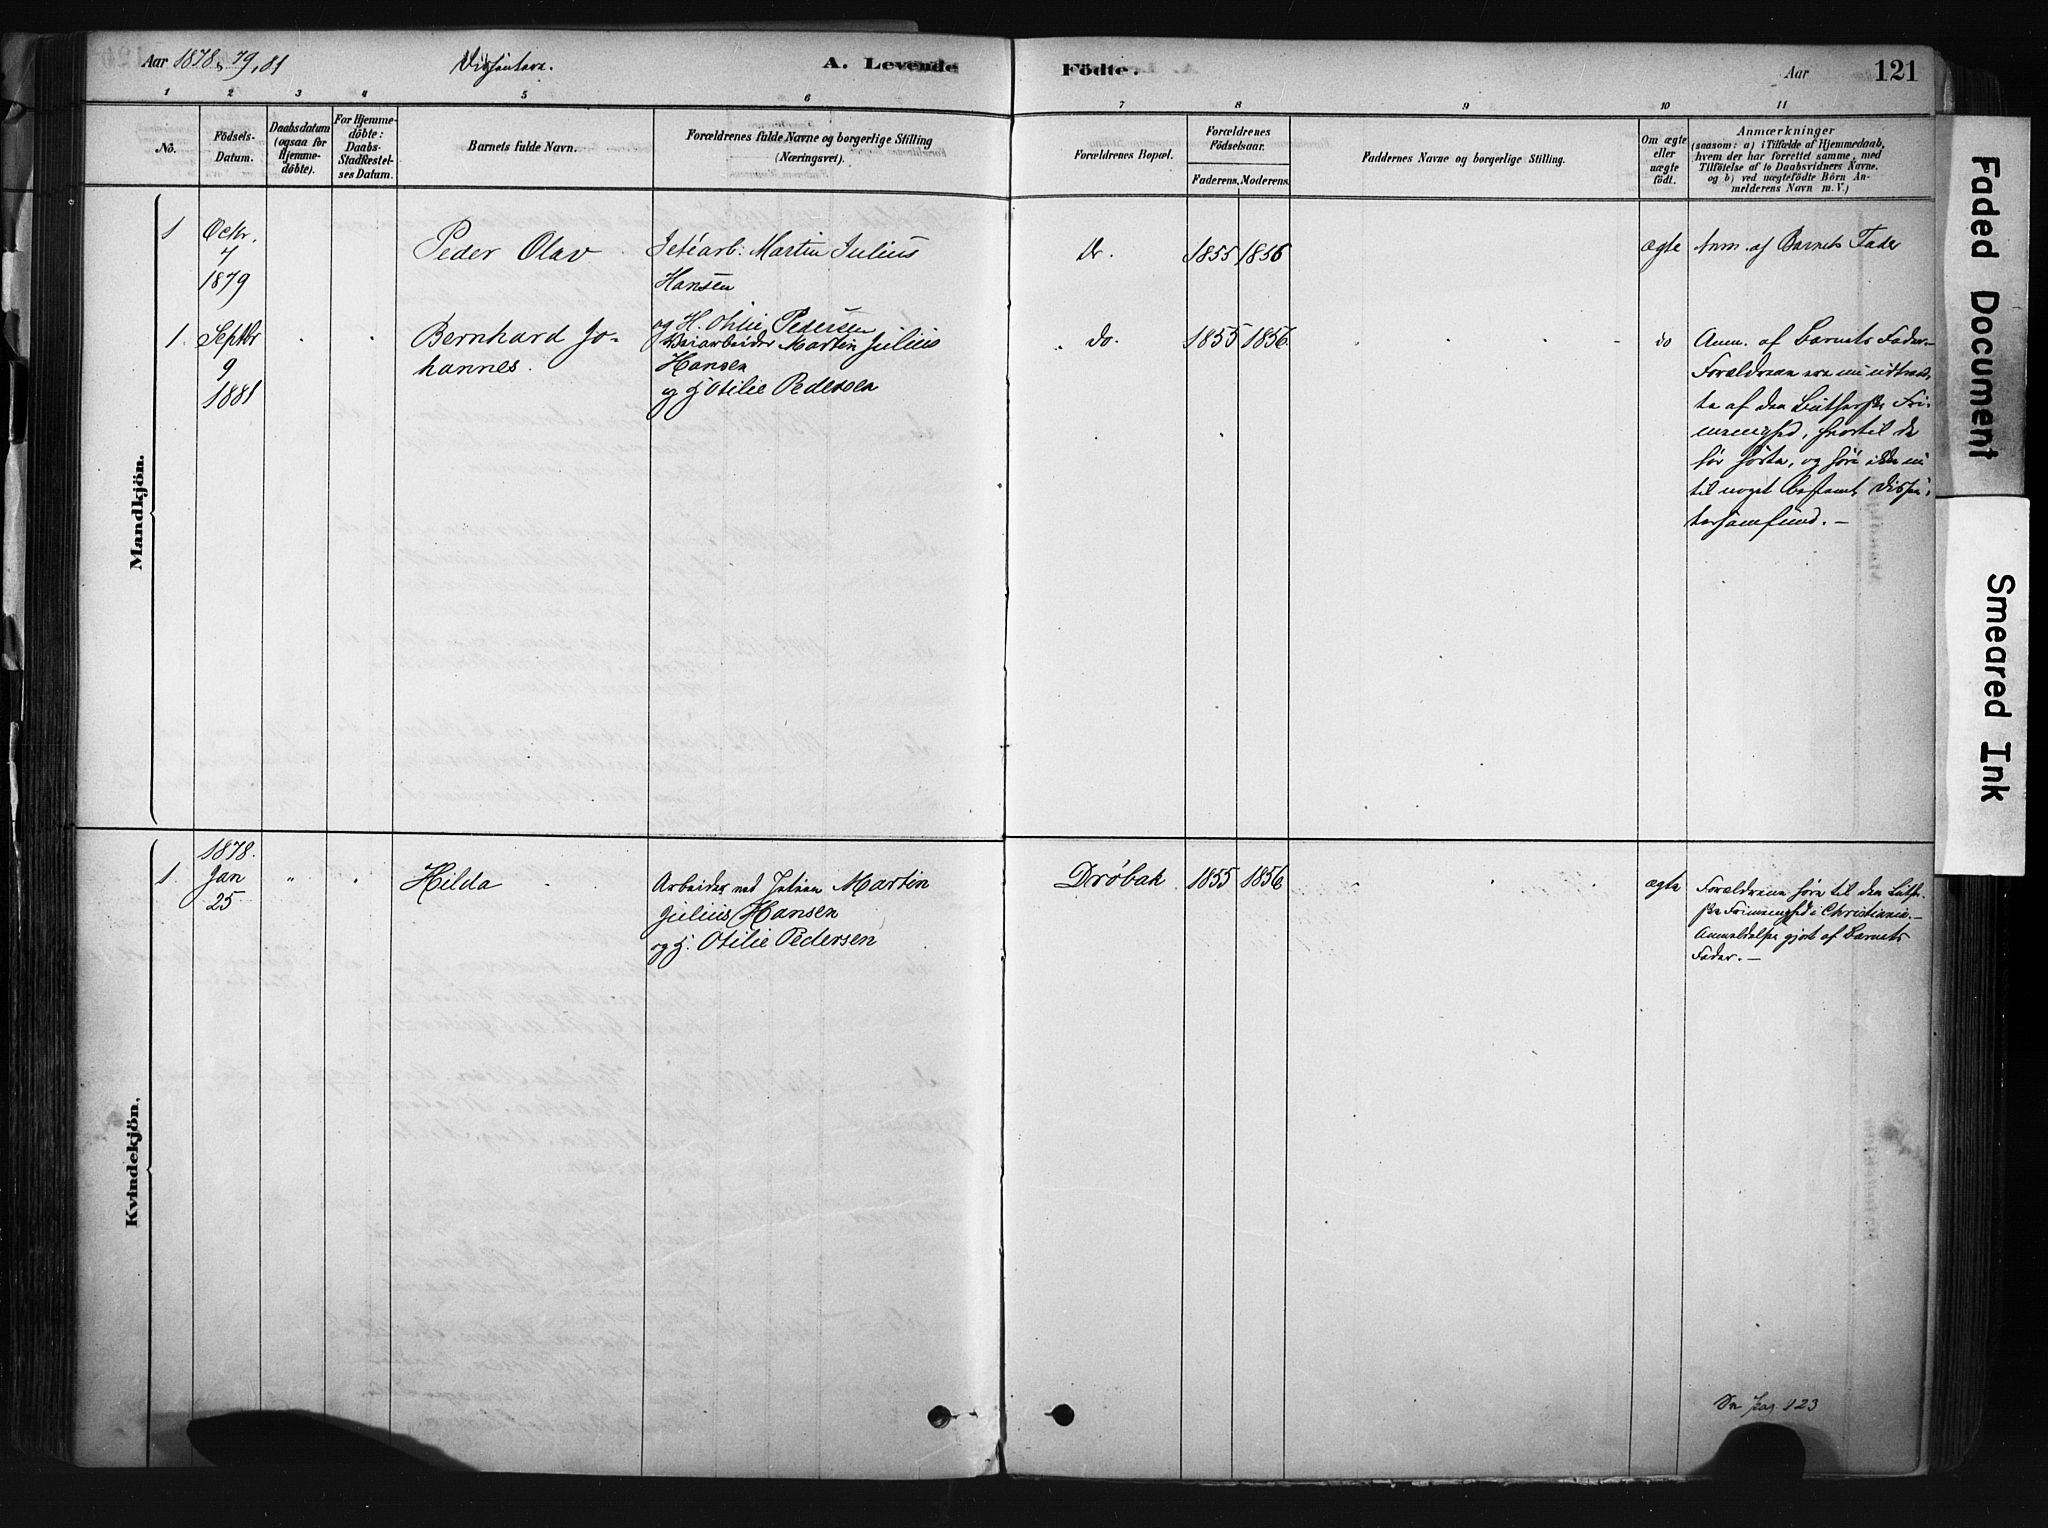 Aar 1878, 79, 81
Dissentere.
A. Levende
Födte.
Aar
121
1 2 3 4 5 6 7 8 9 10 11
No.
Födsels-
Datum.
Daabsdatum
(ogsaa for
Hjemme-
döbte).
For Hjemme-
döbte:
Daabs-
Stadfestel-
ses Datum.
Barnets fulde Navn.
Forældrenes fulde Navne og borgerlige Stilling
(Næringsvei).
Forældrenes Bopæl.
Forældrenes
Födselsaar.
Faderens. Moderens.
Faddernes Navne og borgerlige Stilling.
Om ægte
eller
uægte
födt.
Anmærkninger
(saasom: a) i Tilfælde af Hjemmedaab,
hvem der har forrettet samme, med
Tilföielse af to Daabsvidners Navne.
og b) ved uægtefödte Börn An-
melderens Navn m. V.)
Mandkjön.
1 Octr.
7
1879
Peder Olav
Martin Julius
Hansen
og H. Otilie Pedersen
Dr.
1855 1856
ægte
Anm. af Barnets Fader
1. Septbr
9
1881
Bernhard Jo-
hannes.
Martin Julius
Hansen
og H Otilie Pedersen
do.
1855 1856
do
Anm. af Barnets Fader.-
Forældrene ere nu udtraad-
te af den Lutherske Fri-
menighed, hvortil de
før hørte, og høre ikke nu
til noget bestemt Dissen-
tersamfund. -
Kvindekjön.
1.
1878.
Jan
25
Hilda
Arbeider ved Martin
Julius Hansen
og H. Otilie Pedersen
Drøbak
1855 1856
ægte
Forældrene høre til den Luth-
ske Frimenighed i Christiania. -
Anmeldelse gjort af Barnets
Fader. -
Se pag. 123
Faded Document
Smeared Ink